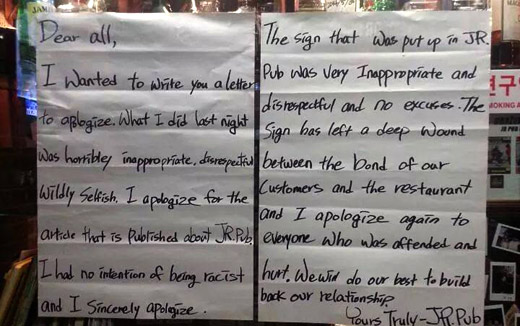 Dear all,
I Wanted to write you a letter
to apologize. What I did last night
was horribley inappropriate, disrespectful
Wildly Selfish. I apologize for the
article that is Published about JR.Pub,
I had no intention of being racist
and I Sincerely apologize.
The sign that was put up in JR.
Pub was very Inappropriate and
disrespectful and no excuses. The
Sign has left a deep wound
between the bond of our
Customers and the restaurant
and I apologize again to
everyone who was offended and
hurt. We will do our best to build
back our relationship.
Yours Truly - JR.Pub
연구